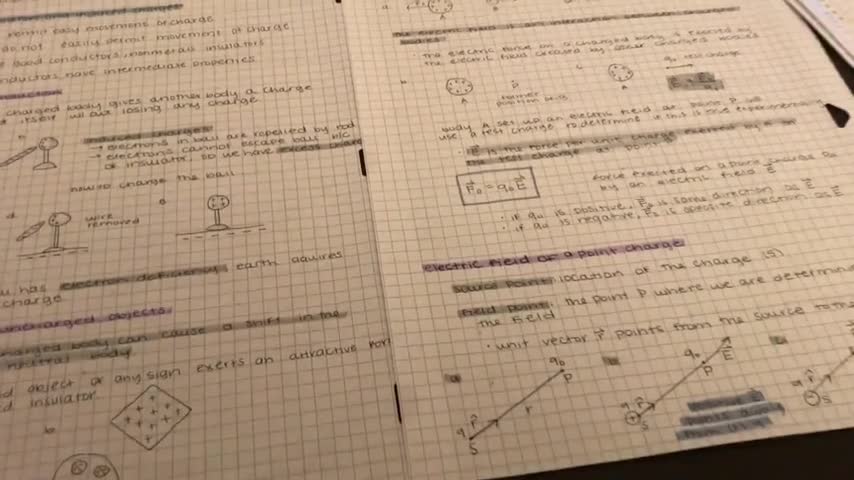 permit easy movement of charge
do not easily permit movement of charge
good conductors, nonmetals insulators
have intermediate properties
charged body gives another body a charge
itself w/out losing any charge
induced charges
→ electrons in ball are repelled by rod
→ electrons cannot escape ball b/c
of insulator, so we have excess charge
how to charge the ball
d
wire
removed
has electron deficiency, earth aquires
charge
uncharged objects
charged body can cause a shift in the
neutral body
object of any sign exerts an attractive
insulator
b
A
B
the electric field is an interaction between charged
bodies
· the electric force on a charged body is exerted by
the electric field created by other charged bodies
b
A
P
former
position of
c
q₀ test charge
A
body A set up an electric field at point P
use a test charge to determine if this is true experimentally
· E is the force per unit charge exerted by
the test charge at point
F⃗₀ = q₀E⃗
force exerted on a point charge q₀
by an electric field E⃗
· if q₀ is positive, F⃗₀ is same direction as E⃗
· if q₀ is negative, F⃗₀ is opposite direction as E⃗
electric field of a point charge
source point: location of the charge (S)
field point: the point P where we are
the field
· unit vector r̂ points from the source to
a
q₀
P
r
r̂
q
S
b
q₀
P
E⃗
r̂
q
S
r̂
S